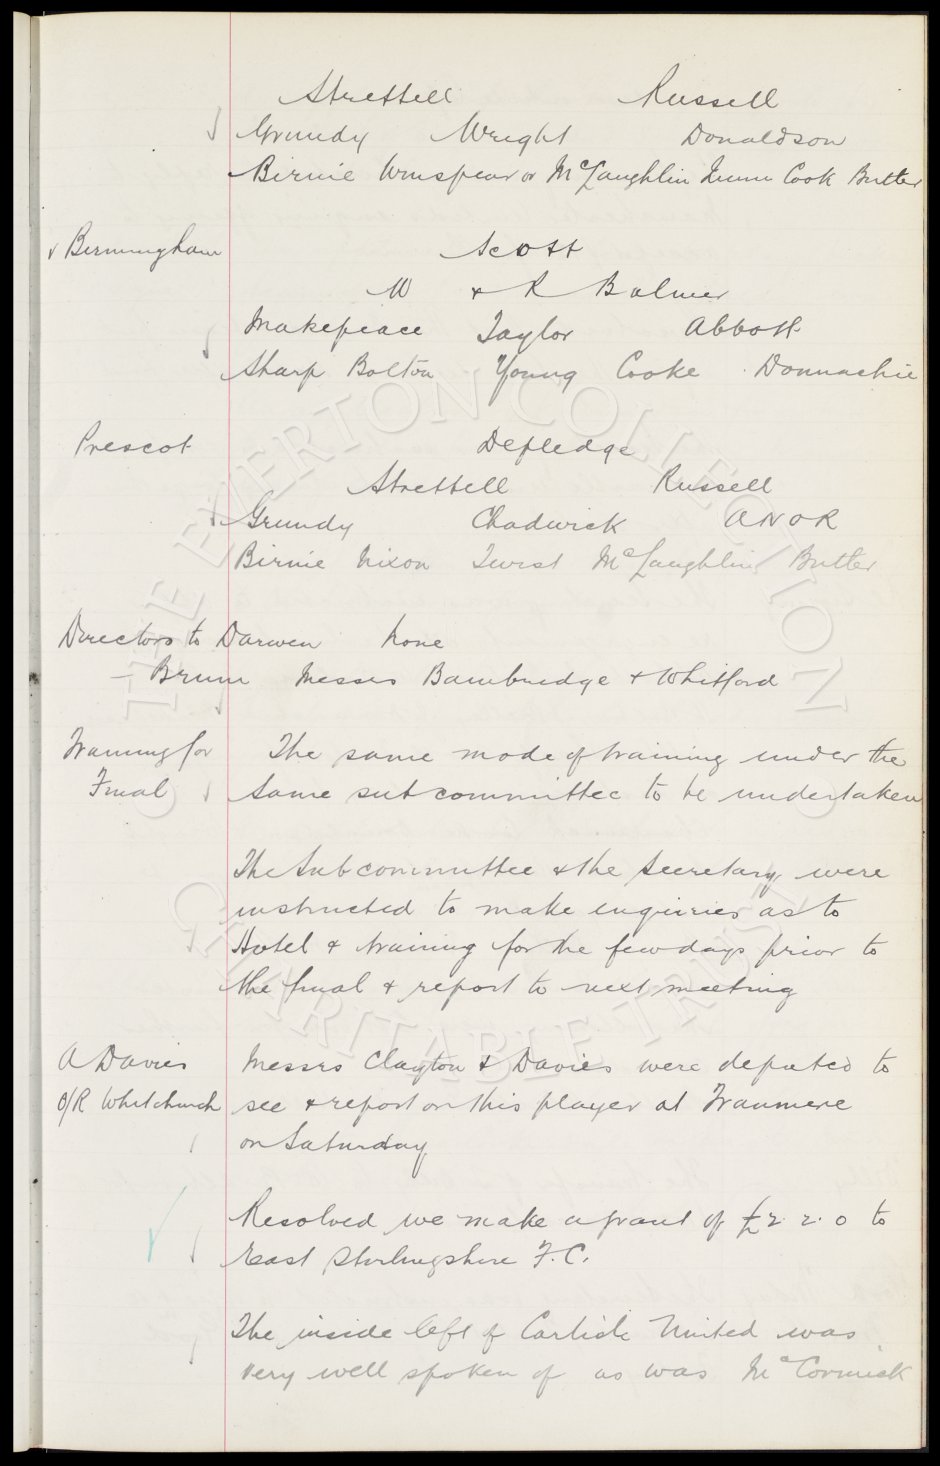 Strettell Russell
Grundy Wright Donaldson
Birnie Winspear or McLaughlin Cook Butler
Birmingham Scott
W & R Balmer
Makepeace Taylor Abbott
Sharp Bolton Young Cooke Donnachie
Prescot Depledge
Strettell Russell
Grundy Chadwick A N O R
Birnie Nixon Twist McLaughlin Butler
Directors to Darwen None
— Brum Messrs Bainbridge & Whitford
Training for The same mode of training under the
Final same subcommittee to be undertaken
The Subcommittee & the Secretary were
instructed to make enquiries as to
Hotel & training for the few days prior to
the final & report to next meeting
A Davies Messrs Clayton & Davies were deputed to
O/R Whitchurch see & report on this player at Tranmere
on Saturday
Resolved we make a grant of £2.2.0 to
East Stirlingshire F.C.
The inside left of Carlisle United was
very well spoken of as was McCormick
THE EVERTON COLLECTION
CHARITABLE TRUST